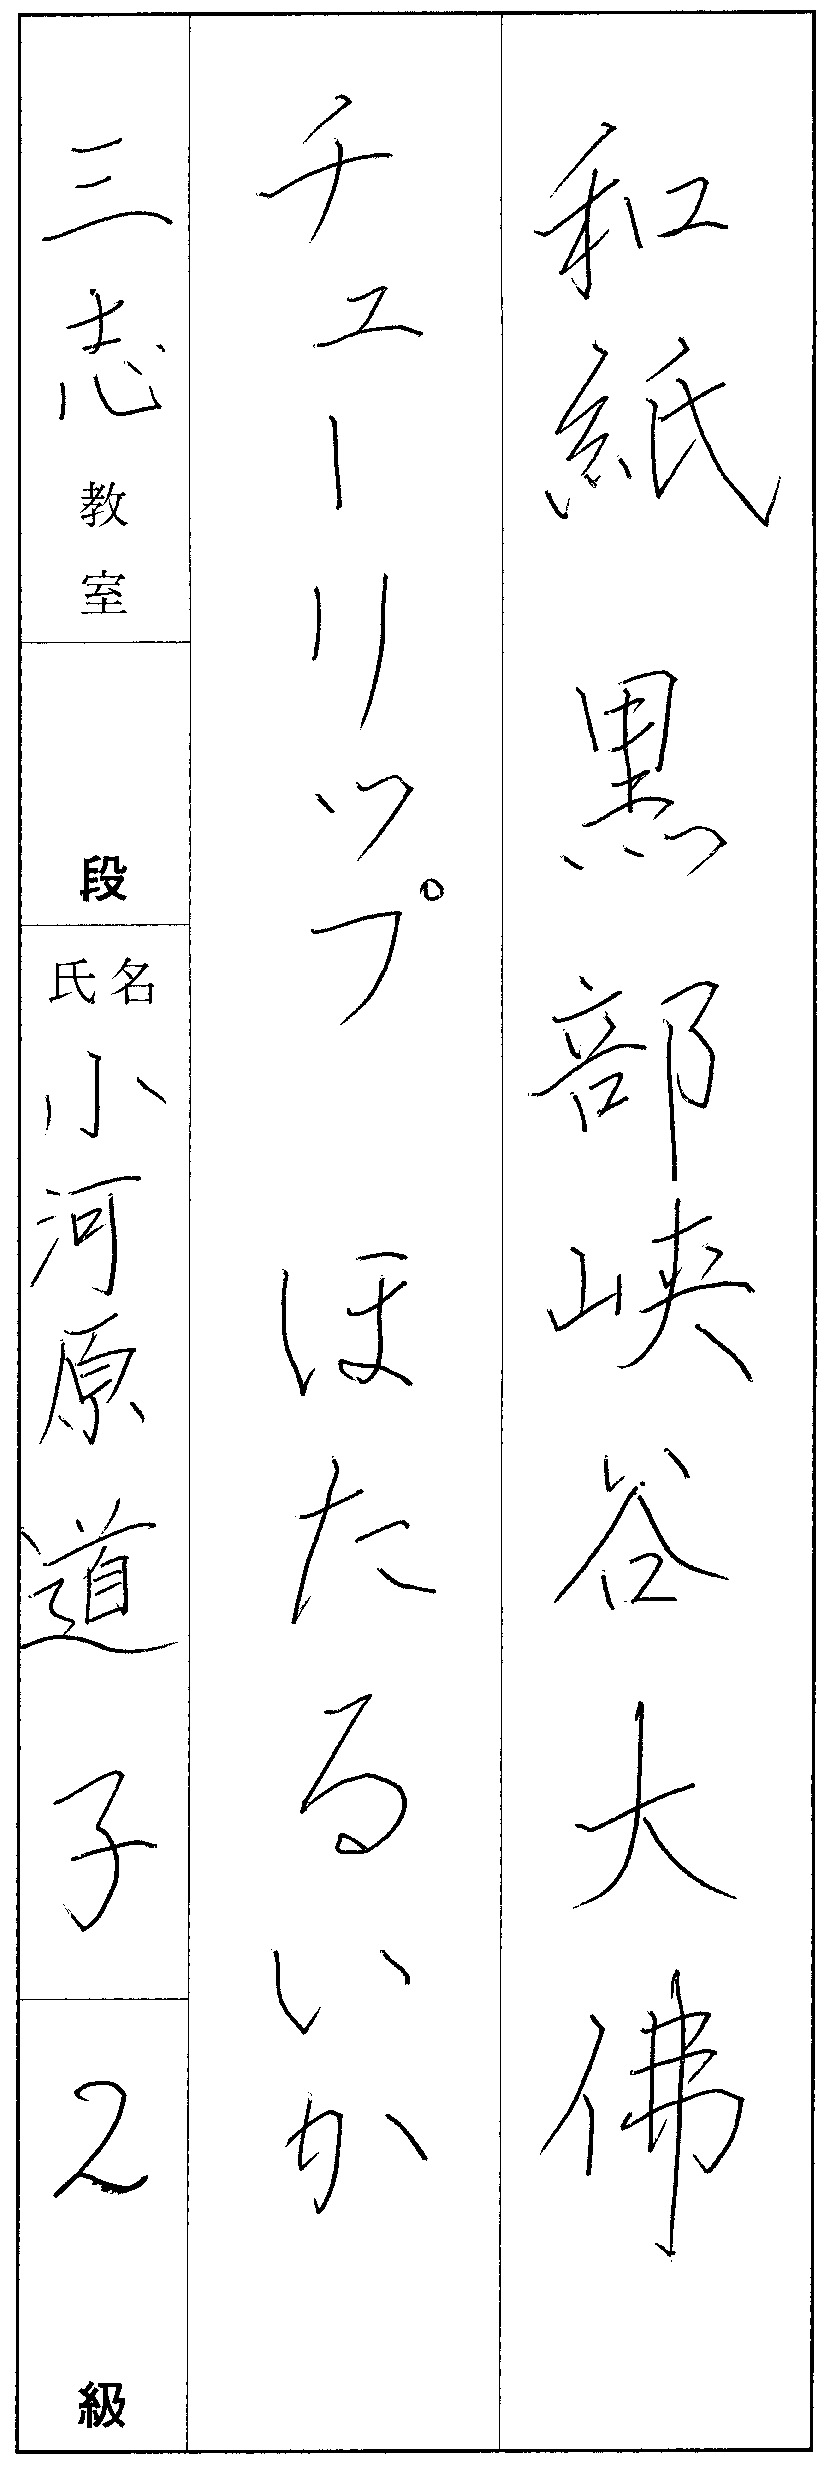 和紙 黒部峡谷大佛
チューリップ ほたるいか
三志教室
段
氏名
小河原道子
2級